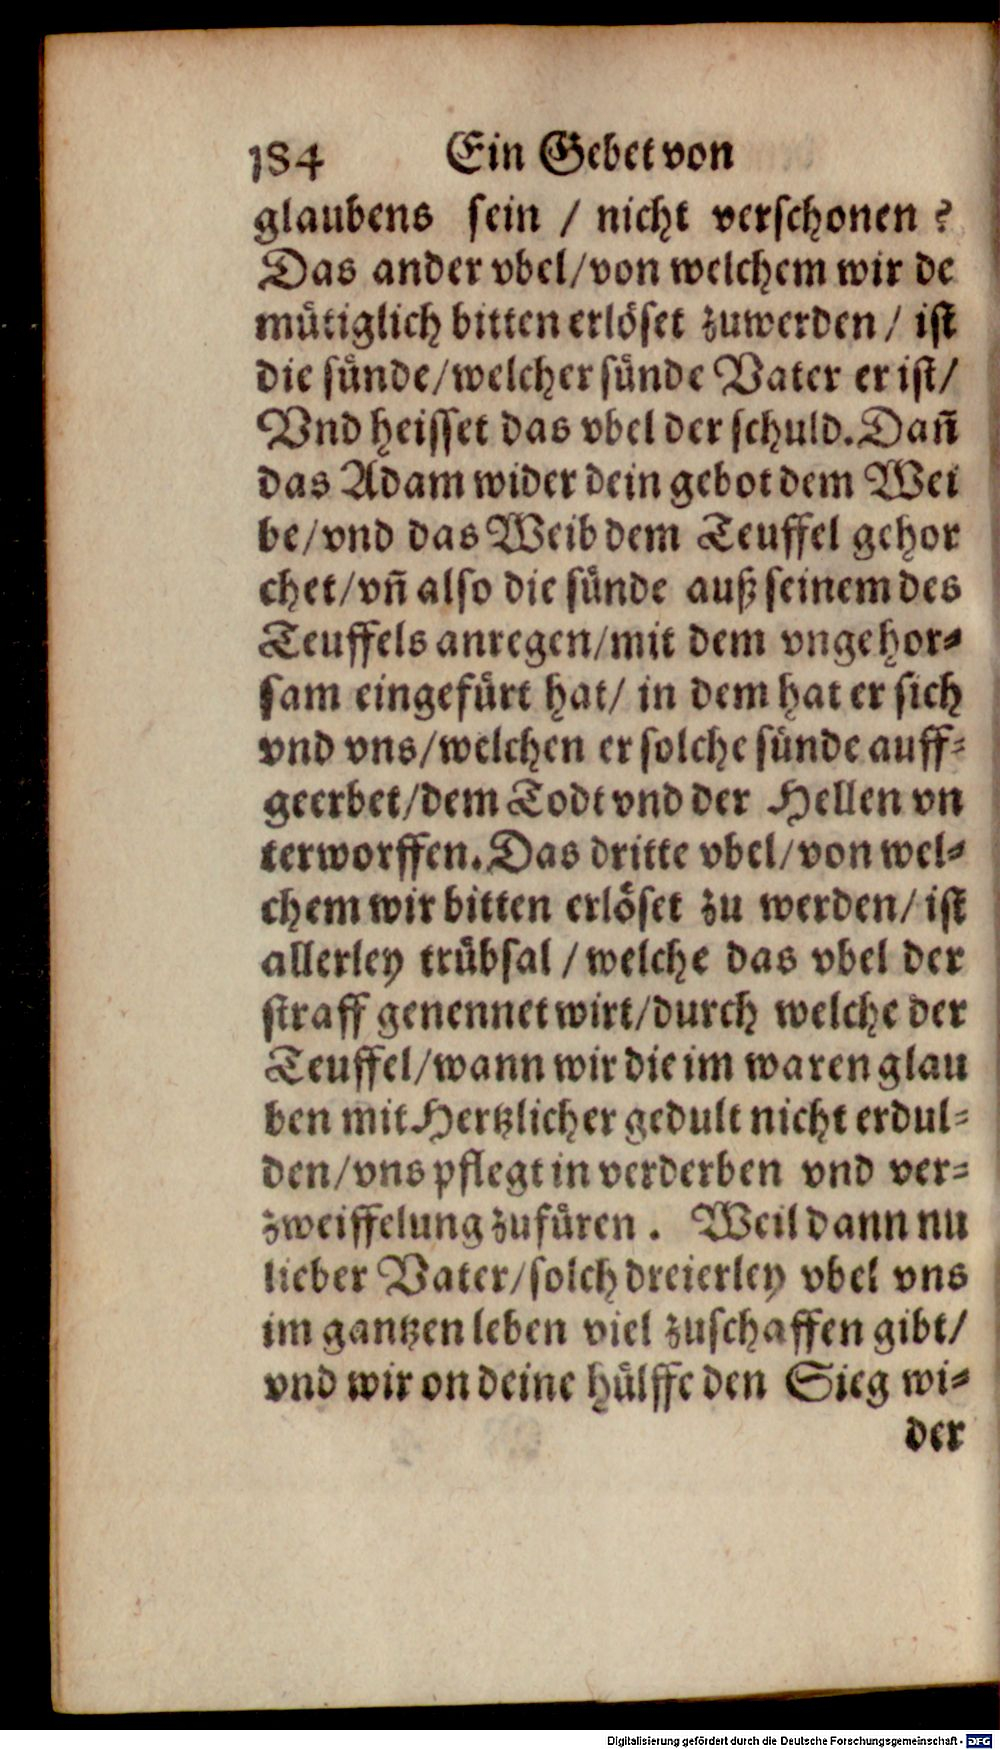 184 Ein Gebet von
glaubens sein / nicht verschonen ?
Das ander vbel/von welchem wir de
mütiglich bitten erlöset zuwerden / ist
die sünde/welcher sünde Vater er ist/
Vnd heisset das vbel der schuld. Dañ
das Adam wider dein gebot dem Wei
be/vnd das Weib dem Teuffel gehor
chet/vñ also die sünde auß seinem des
Teuffels anregen/mit dem vngehor⸗
sam eingefürt hat/ in dem hat er sich
vnd vns/welchen er solche sünde auff⸗
geerbet/dem Todt vnd der Hellen vn
terworffen. Das dritte vbel/von wel⸗
chem wir bitten erlöset zu werden/ ist
allerley trübsal / welche das vbel der
straff genennet wirt/durch welche der
Teuffel/wann wir die im waren glau
ben mit Hertzlicher gedult nicht erdul⸗
den/vns pflegt in verderben vnd ver⸗
zweiffelung zufüren . Weil dann nu
lieber Vater/solch dreierley vbel vns
im gantzen leben viel zuschaffen gibt/
vnd wir on deine hülffe den Sieg wi⸗
der
Digitalisierung gefördert durch die Deutsche Forschungsgemeinschaft - DFG